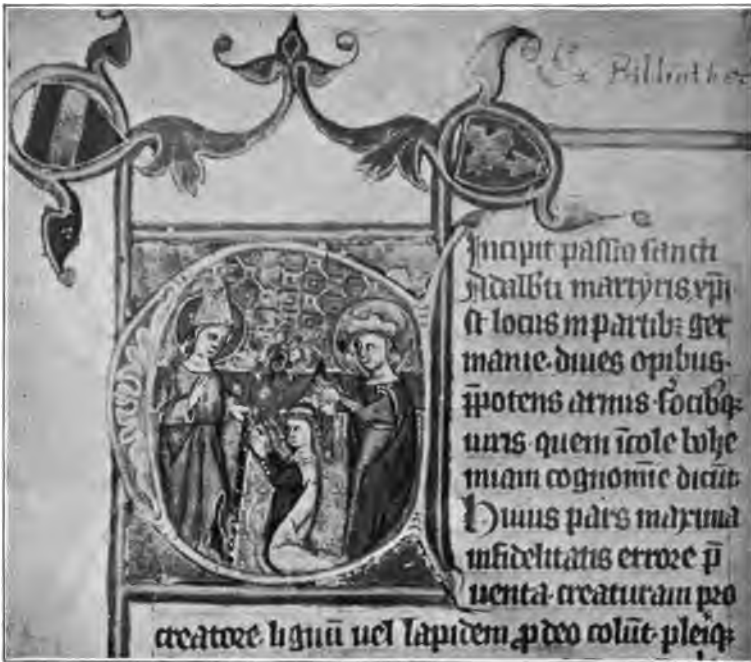 Ex Bibliothec
Incipit passio sancti
Adalbti martyris xpi
st locus in partib; ger
manie·diues opibus·
p̄potens armis·
uiris·quem īcole bohe
miam cognomīe dicūt·
Huius pars maxima
infidelitatis errore p̄
uenta·creaturam pro
creatore·lignū uel lapidem ꝓ deo colūt·pleiq;